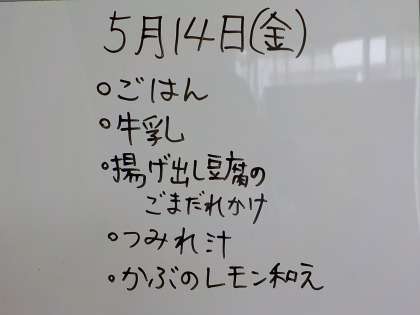 5月14日(金)
○ごはん
○牛乳
○揚げ出し豆腐の
ごまだれかけ
○つみれ汁
○かぶのレモン和え